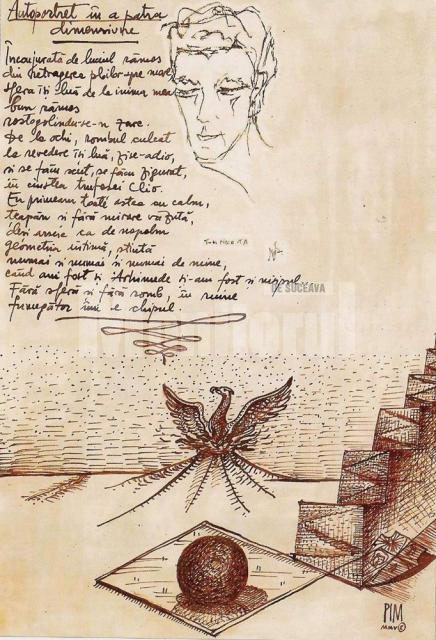 Autoportret în a patra
dimensiune
Încojurată de luciul rămos
din retragerea plilor spre mare
sfera își luă de la inima mea
bun rămas
rostogolindu-se-n zare.
De la ochi, rombul culcat
la revedere își luă, zise-adio,
și se făcu scut, se făcu zigurat,
în cinstea trufașei Clio.
Eu priveam toate astea cu calm,
țeapăn și fără mirare văzută,
deși arsei ca de napalm
geometria intimă, știută
numai și numai și numai de mine,
când am fost și Arhimede și-am fost și nisipul
Fără sferă și fără romb, în ruine
fumegător îmi e chipul
DE SUCEAVA
PIM